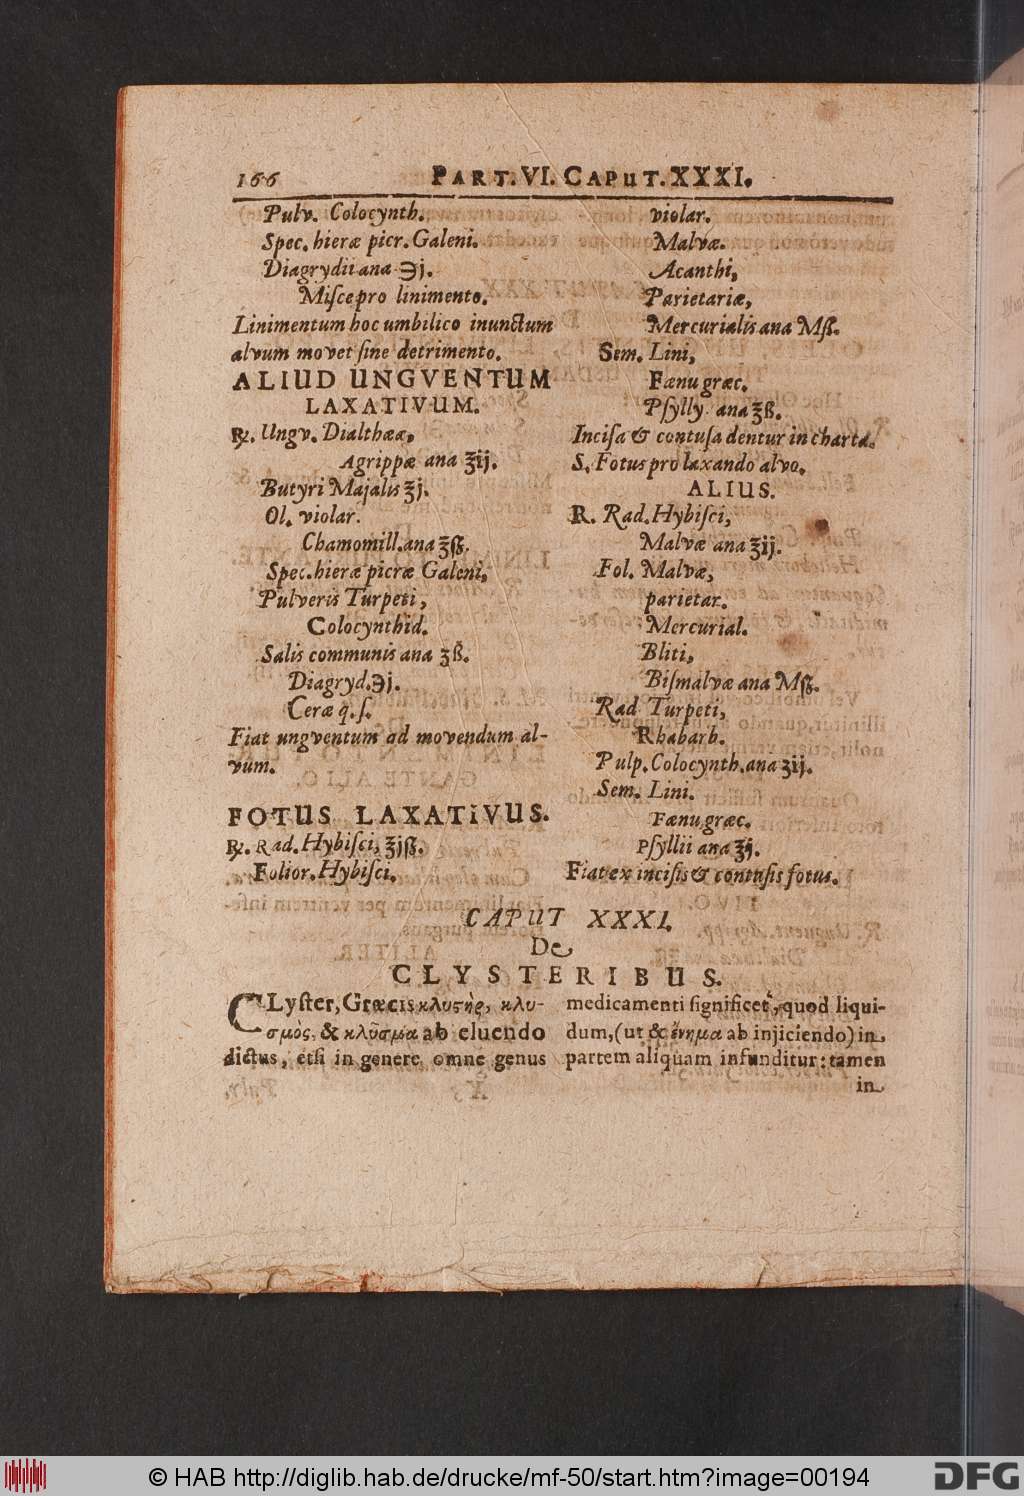 166 PART. VI. CAPUT. XXXI.
Pulv. Colocynth.
Spec. hieræ picr. Galeni.
Diagrydii ana ℈j.
Miſce pro linimento.
Linimentum hoc umbilico inunctum
alvum movet ſine detrimento.
ALIUD UNGVENTUM
LAXATIVUM.
℞. Ungv. Dialthææ,
Agrippæ ana ʒij.
Butyri Majalis ʒj.
Ol. violar.
Chamomill. ana ʒſß.
Spec. hieræ picræ Galeni,
Pulveris Turpeti,
Colocynthid.
Salis communis ana ʒß.
Diagryd. ℈j.
Ceræ q. ſ.
Fiat ungventum ad movendum al-
vum.
FOTUS LAXATIVUS.
℞. Rad. Hybiſci, ʒjß.
Folior. Hybiſci.
violar.
Malvæ.
Acanthi,
Parietariæ,
Mercurialis ana Mß.
Sem. Lini,
Fænu græc.
Pſylly ana ʒß.
Inciſa & contuſa dentur in charta.
S. Fotus pro laxando alvo.
ALIUS.
R. Rad. Hybiſci,
Malvæ ana ʒij.
Fol. Malvæ,
parietar.
Mercurial.
Bliti,
Biſmalvæ ana Mß.
Rad Turpeti,
Rhabarb.
Pulp. Colocynth. ana ʒij.
Sem. Lini.
Fænu græc.
Pſyllii ana ʒj.
Fiat ex inciſis & contuſis fotus.
CAPUT XXXI.
De
CLYSTERIBUS.
CLyſter, Græcis κλυστὴρ, κλυ-
σμὸς, & κλῦσμα ab eluendo
dictus, etſi in genere omne genus
medicamenti ſignificet, quod liqui-
dum, (ut & ἔνημα ab injiciendo) in
partem aliquam infunditur: tamen
in
© HAB http://diglib.hab.de/drucke/mf-50/start.htm?image=00194
DFG